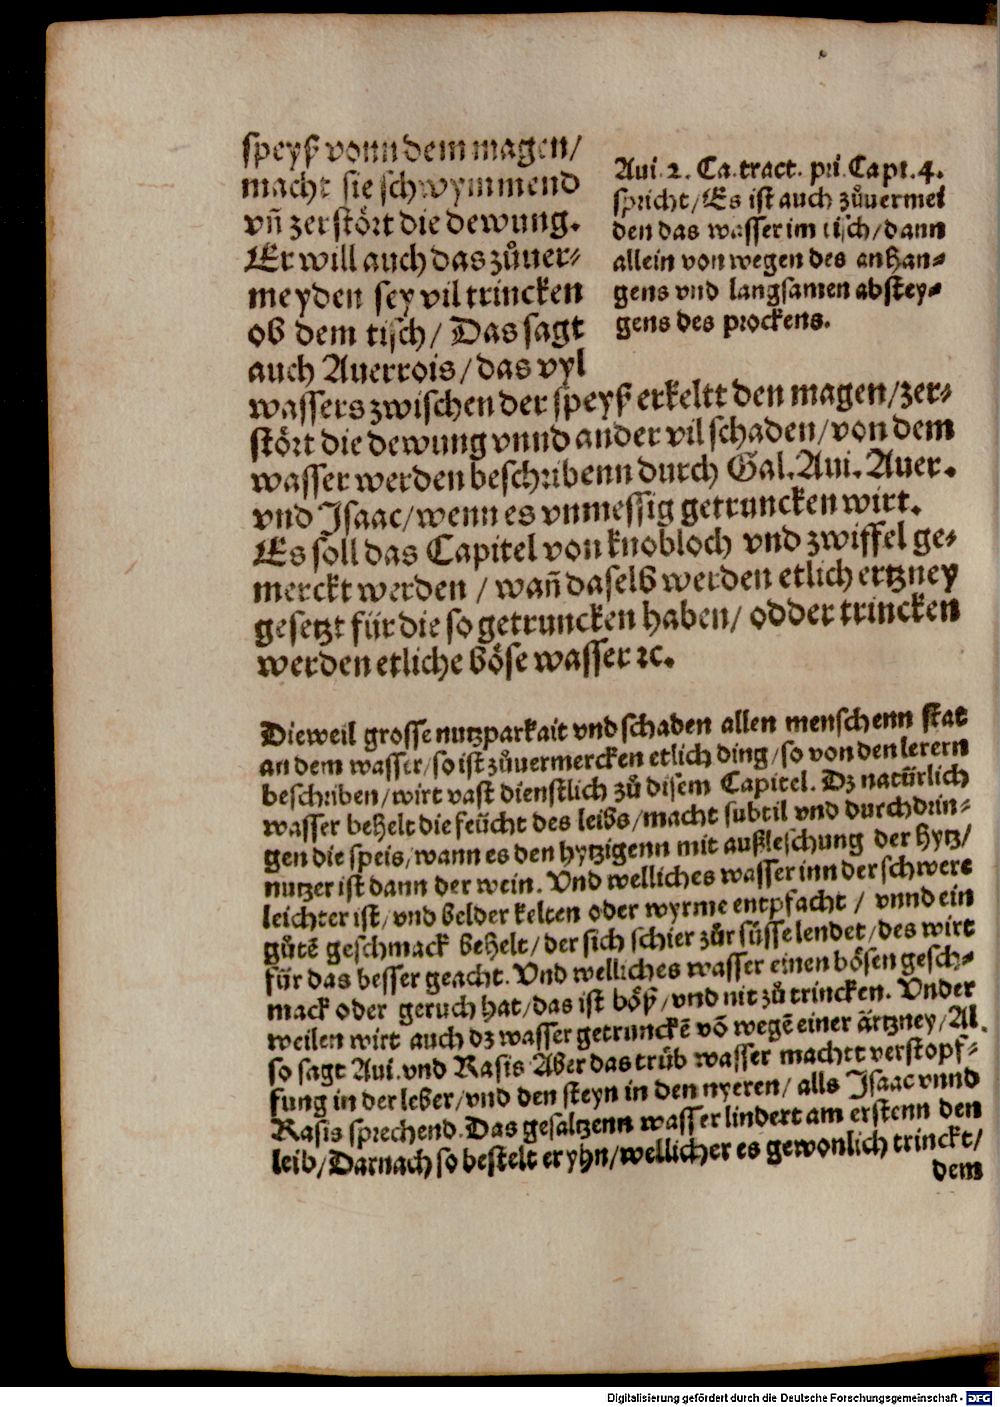 speyß vonn dem magen/
macht sie schwymmend
vñ zerstört die dewung.
Er will auch das zůuer-
meyden sey vil trincken
ob dem tisch/ Das sagt
auch Auerrois/das vyl
wassers zwischen der speyß erkeltt den magen/zer-
stört die dewung vnnd ander vil schaden/von dem
wasser werden beschribenn durch Gal. Aui. Auer.
vnd Isaac/wenn es vnmessig getruncken wirt.
Es soll das Capitel von knobloch vnd zwiffel ge-
merckt werden / wañ daselb werden etlich ertzney
gesetzt für die so getruncken haben/ odder trincken
werden etliche böse wasser ꝛc.
Aui. 2. Ca. tract. pri. Capt. 4.
spricht/Es ist auch zůuermei
den das wasser im tisch/dann
allein von wegen des anhan-
gens vnd langsamen abstey-
gens des prockens.
Dieweil grosse nutzparkait vnd schaden allen menschenn stat
an dem wasser/so ist zůuermercken etlich ding/so von den lerern
beschriben/wirt vast dienstlich zů disem Capitel. Dz natürlich
wasser behelt die feücht des leibs/macht subtil vnd durchdrin-
gen die speis/wann es den hytzigenn mit außleschung der hytz/
nutzer ist dann der wein. Vnd welliches wasser inn der schwere
leichter ist/vnd belder kelten oder wyrme entpfacht / vnnd ein
gůtē geschmack behelt/der sich schier zůr süsse lendet/des wirt
für das besser geacht. Vnd welliches wasser einen bösen gesch-
mack oder geruch hat/das ist böß/vnd nit zů trincken. Vnder
weilen wirt auch dz wasser getrunckē vō wegē einer ärtzney/Al
so sagt Aui. vnd Rasis Aber das trüb wasser machtt verstopf-
fung in der leber/vnd den steyn in den nyeren/ alls Isaac vnnd
Rasis sprechend. Das gesaltzenn wasser lindert am erstenn den
leib/Darnach so bestelt er yhn/wellicher es gewonlich trinckt/
dem
Digitalisierung gefördert durch die Deutsche Forschungsgemeinschaft - DFG